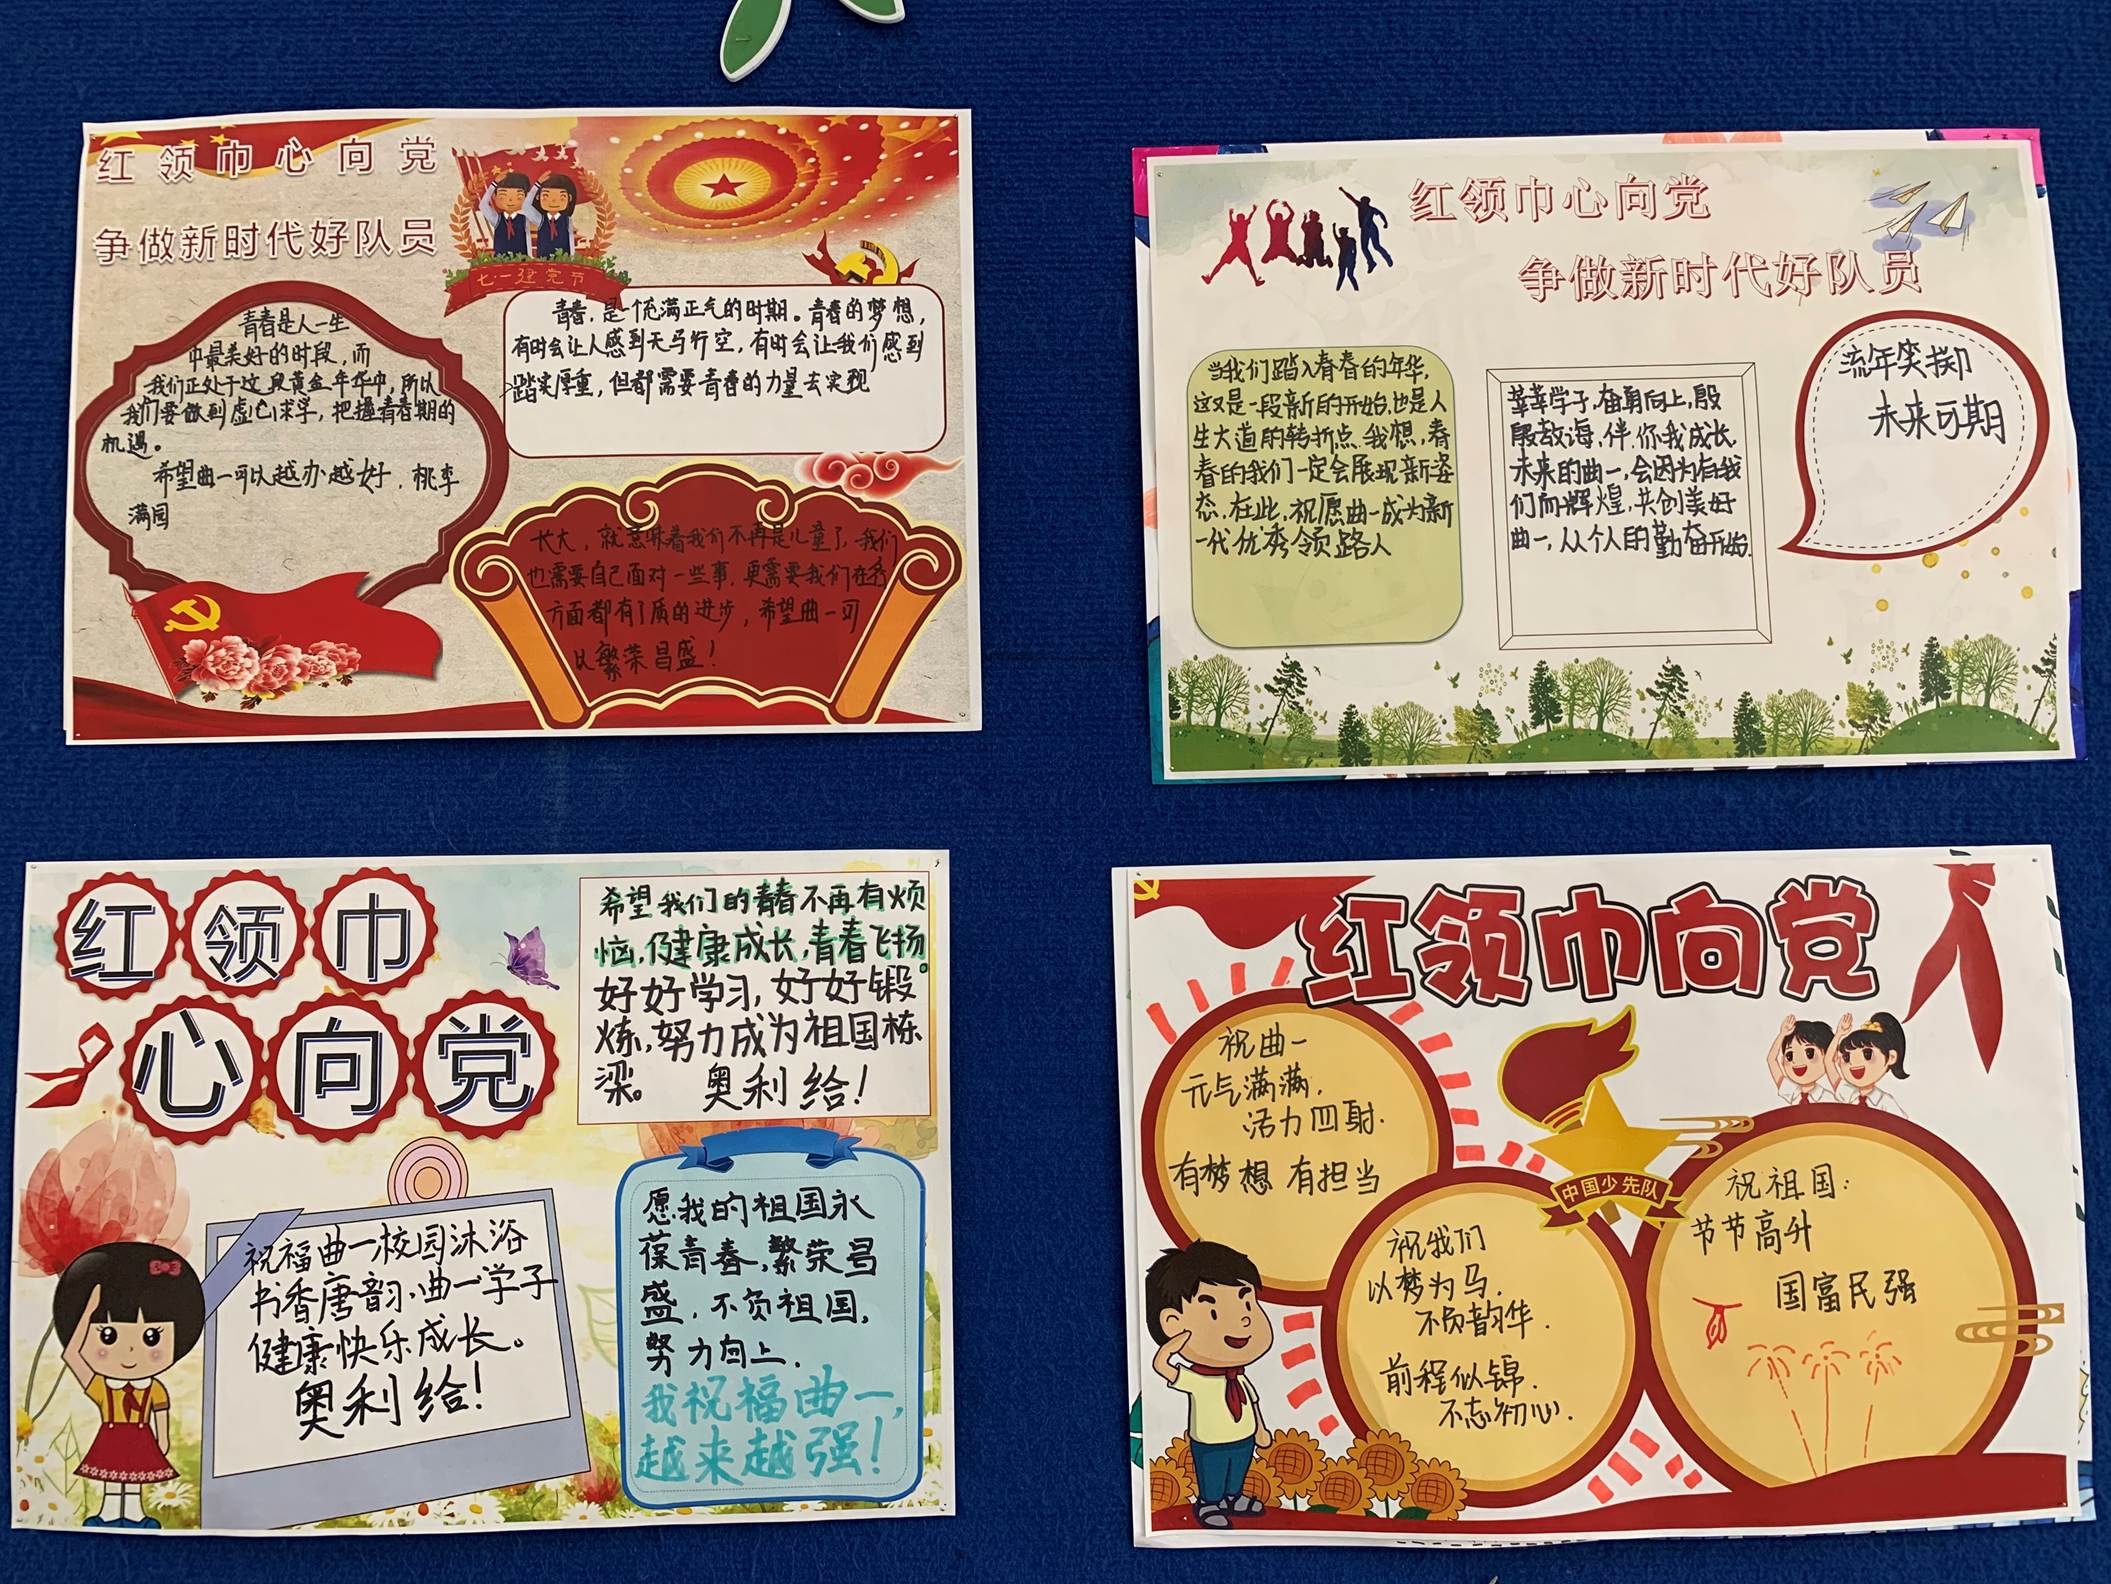 红领巾心向党
争做新时代好队员
七一建党节
青春是人一生
中最美好的时段,而
我们正处于这段黄金年华中,所以
我们要做到虚心求学,把握青春期的
机遇。
希望曲一可以越办越好,桃李
满园
青春,是一个充满正气的时期。青春的梦想,
有时会让人感到天马行空,有时会让我们感到
踏实厚重,但都需要青春的力量去实现
长大,就意味着我们不再是儿童了,我们
也需要自己面对一些事,更需要我们在各
方面都有了质的进步,希望曲一可
以繁荣昌盛!
红领巾心向党
争做新时代好队员
当我们踏入青春的年华,
这又是一段新的开始,也是人
生大道的转折点.我想,春
春的我们一定会展现新姿
态,在此,祝愿曲一成为新
一代优秀领路人
莘莘学子,奋勇向上,殷
殷教诲,伴你我成长,
未来的曲一,会因为有我
们而辉煌,共创美好
曲一,从个人的勤奋开始.
流年笑掷
未来可期
红领巾
心向党
希望我们的青春不再有烦
恼,健康成长,青春飞扬。
好好学习,好好锻
炼,努力成为祖国栋
梁。 奥利给!
祝福曲一校园沐浴
书香唐韵,曲一学子
健康快乐成长。
奥利给!
愿我的祖国永
葆青春,繁荣昌
盛,不负祖国,
努力向上.
我祝福曲一,
越来越强!
红领巾向党
祝曲一
元气满满,
活力四射.
有梦想 有担当
中国少先队
祝我们
以梦为马.
不负韵华.
前程似锦.
不忘初心.
祝祖国:
节节高升
国富民强